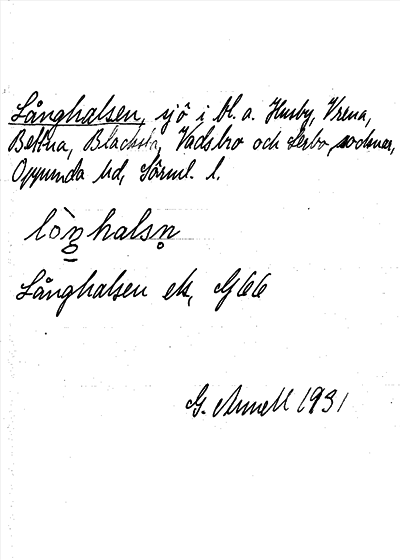 Långhalsen, sjö i bl. a. Husby, Vrena,
Bettna, Blacksta, Vadsbro och Lerbo socknar,
Oppunda hd, Sörml. l.
lòŋhalsn̥
Långhalsen ek, G66
G. Annell 1931